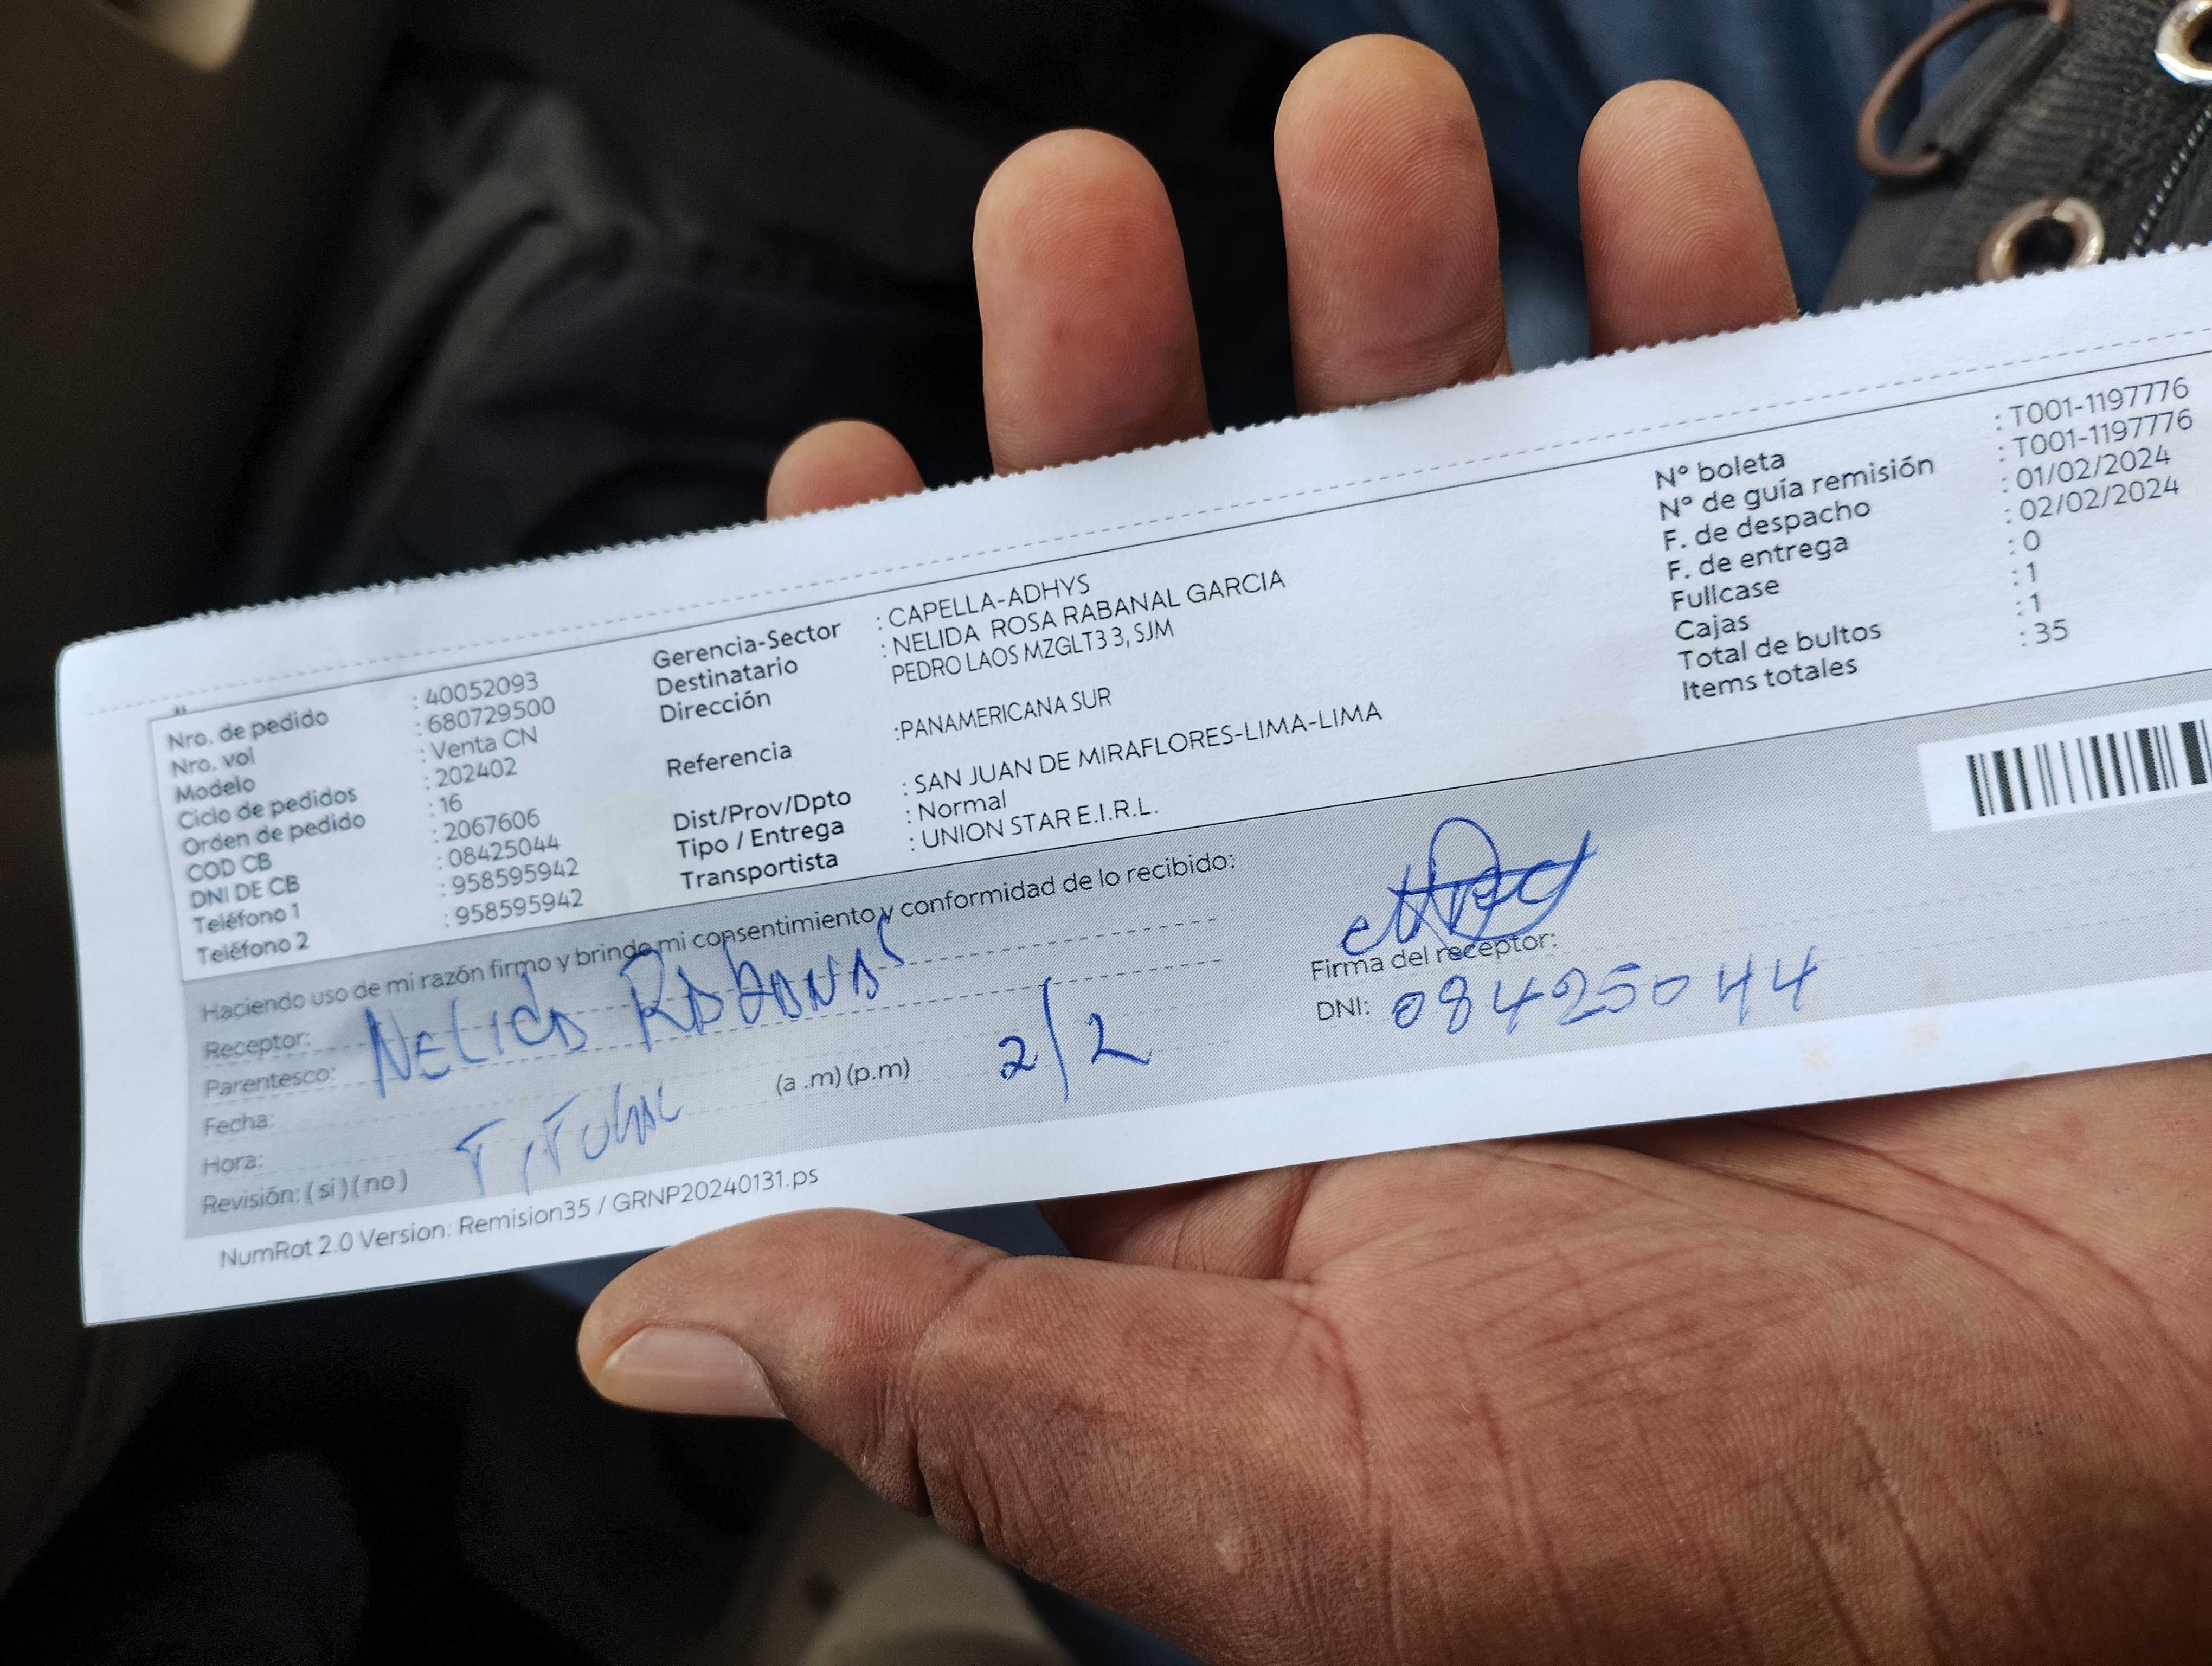 Nro. de pedido : 40052093
Nro. vol : 680729500
Modelo : Venta CN
Ciclo de pedidos : 202402
Orden de pedido : 16
COD CB : 2067606
DNI DE CB : 08425044
Teléfono 1 : 958595942
Teléfono 2 : 958595942
Gerencia-Sector : CAPELLA-ADHYS
Destinatario : NELIDA ROSA RABANAL GARCIA
Dirección PEDRO LAOS MZGLT3 3, SJM
Referencia :PANAMERICANA SUR
Dist/Prov/Dpto : SAN JUAN DE MIRAFLORES-LIMA-LIMA
Tipo / Entrega : Normal
Transportista : UNION STAR E.I.R.L.
N° boleta : T001-1197776
N° de guía remisión : T001-1197776
F. de despacho : 01/02/2024
F. de entrega : 02/02/2024
Fullcase : 0
Cajas : 1
Total de bultos : 1
Items totales : 35
Haciendo uso de mi razón firmo y brindo mi consentimiento y conformidad de lo recibido:
Receptor: NELIDA RABANAL
Parentesco:
Fecha: 2/2
Hora: TITULAR (a .m) (p.m)
Revisión: ( si ) ( no )
Firma del receptor:
DNI: 08425044
NumRot 2.0 Version: Remision35 / GRNP20240131.ps